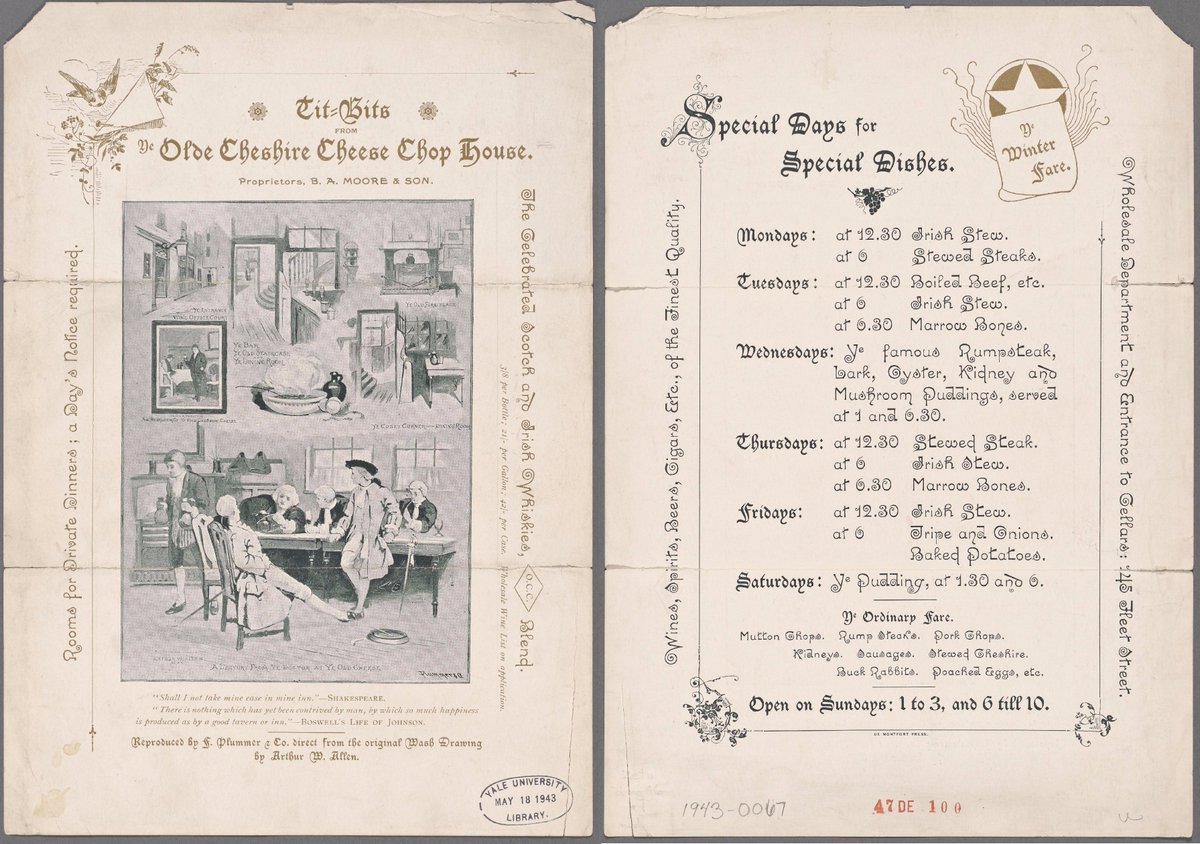 Tit=Bits
FROM
Ye Olde Cheshire Cheese Chop House.
Proprietors, B. A. MOORE & SON.
Rooms for Private Dinners; a Day's Notice required.
YE ENTRANCE
WINE OFFICE COURT
YE BAR
YE OLD STAIRCASE
YE DINING ROOM
YE OLD FIRE PLACE
YE COSEY CORNER—DINING ROOM
A LECTURE FROM YE DOCTOR AT YE OLD CHEESE
Plummer
The Celebrated Scotch and Irish Whiskies, O.C.C. Blend.
3/6 per Bottle; 21/- per Gallon; 42/- per Case. Wholesale Wine List on application.
"Shall I not take mine ease in mine inn."—SHAKESPEARE.
"There is nothing which has yet been contrived by man, by which so much happiness
is produced as by a good tavern or inn."—BOSWELL'S LIFE OF JOHNSON.
Reproduced by F. Plummer & Co. direct from the original Wash Drawing
by Arthur W. Allen.
YALE UNIVERSITY
MAY 18 1943
LIBRARY.
Special Days for
Special Dishes.
Ye
Winter
Fare.
Wines, Spirits, Beers, Cigars, Etc., of the Finest Quality.
Mondays: at 12.30 Irish Stew.
at 6 Stewed Steaks.
Tuesdays: at 12.30 Boiled Beef, etc.
at 6 Irish Stew.
at 6.30 Marrow Bones.
Wednesdays: Ye famous Rumpsteak,
Lark, Oyster, Kidney and
Mushroom Puddings, served
at 1 and 6.30.
Thursdays: at 12.30 Stewed Steak.
at 6 Irish Stew.
at 6.30 Marrow Bones.
Fridays: at 12.30 Irish Stew.
at 6 Tripe and Onions.
Baked Potatoes.
Saturdays: Ye Pudding, at 1.30 and 6.
Ye Ordinary Fare.
Mutton Chops. Rump Steaks. Pork Chops.
Kidneys. Sausages. Stewed Cheshire.
Buck Rabbits. Poached Eggs, etc.
Open on Sundays: 1 to 3, and 6 till 10.
Wholesale Department and Entrance to Cellars: 145 Fleet Street.
DE MONTFORT PRESS.
1943-0067
47DE 100